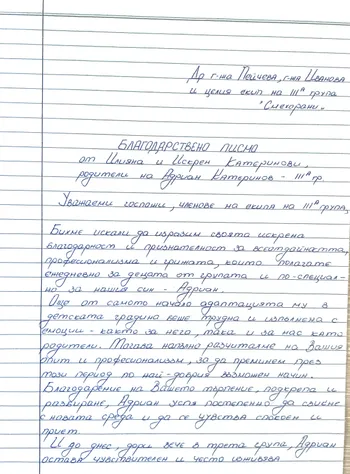 До г-жа Пейчева, г-жа Иванова
и целия екип на IIIª група
"Смехорани"
БЛАГОДАРСТВЕНО ПИСМО
от Илияна и Искрен Катеринови,
родители на Адриан Катеринов - IIIª гр.
Уважаеми госпожи, членове на екипа на IIIª група,
Бихме искали да изразим своята искрена
благодарност и признателност за всеотдайността,
професионализма и грижата, които полагате
ежедневно за децата от групата и по-специал-
но за нашия син - Адриан.
Още от самото начало адаптацията му в
детската градина беше трудна и изпълнена с
емоции - както за него, така и за нас като
родители. Тогава напълно разчитахме на Вашия
опит и професионализъм, за да преминем през
този период по най-добрия възможен начин.
Благодарение на Вашето търпение, подкрепа и
разбиране, Адриан успя постепенно да свикне
с новата среда и да се чувства спокоен и
приет.
И до днес, дори вече в трета група, Адриан
остава чувствителен и често изживява